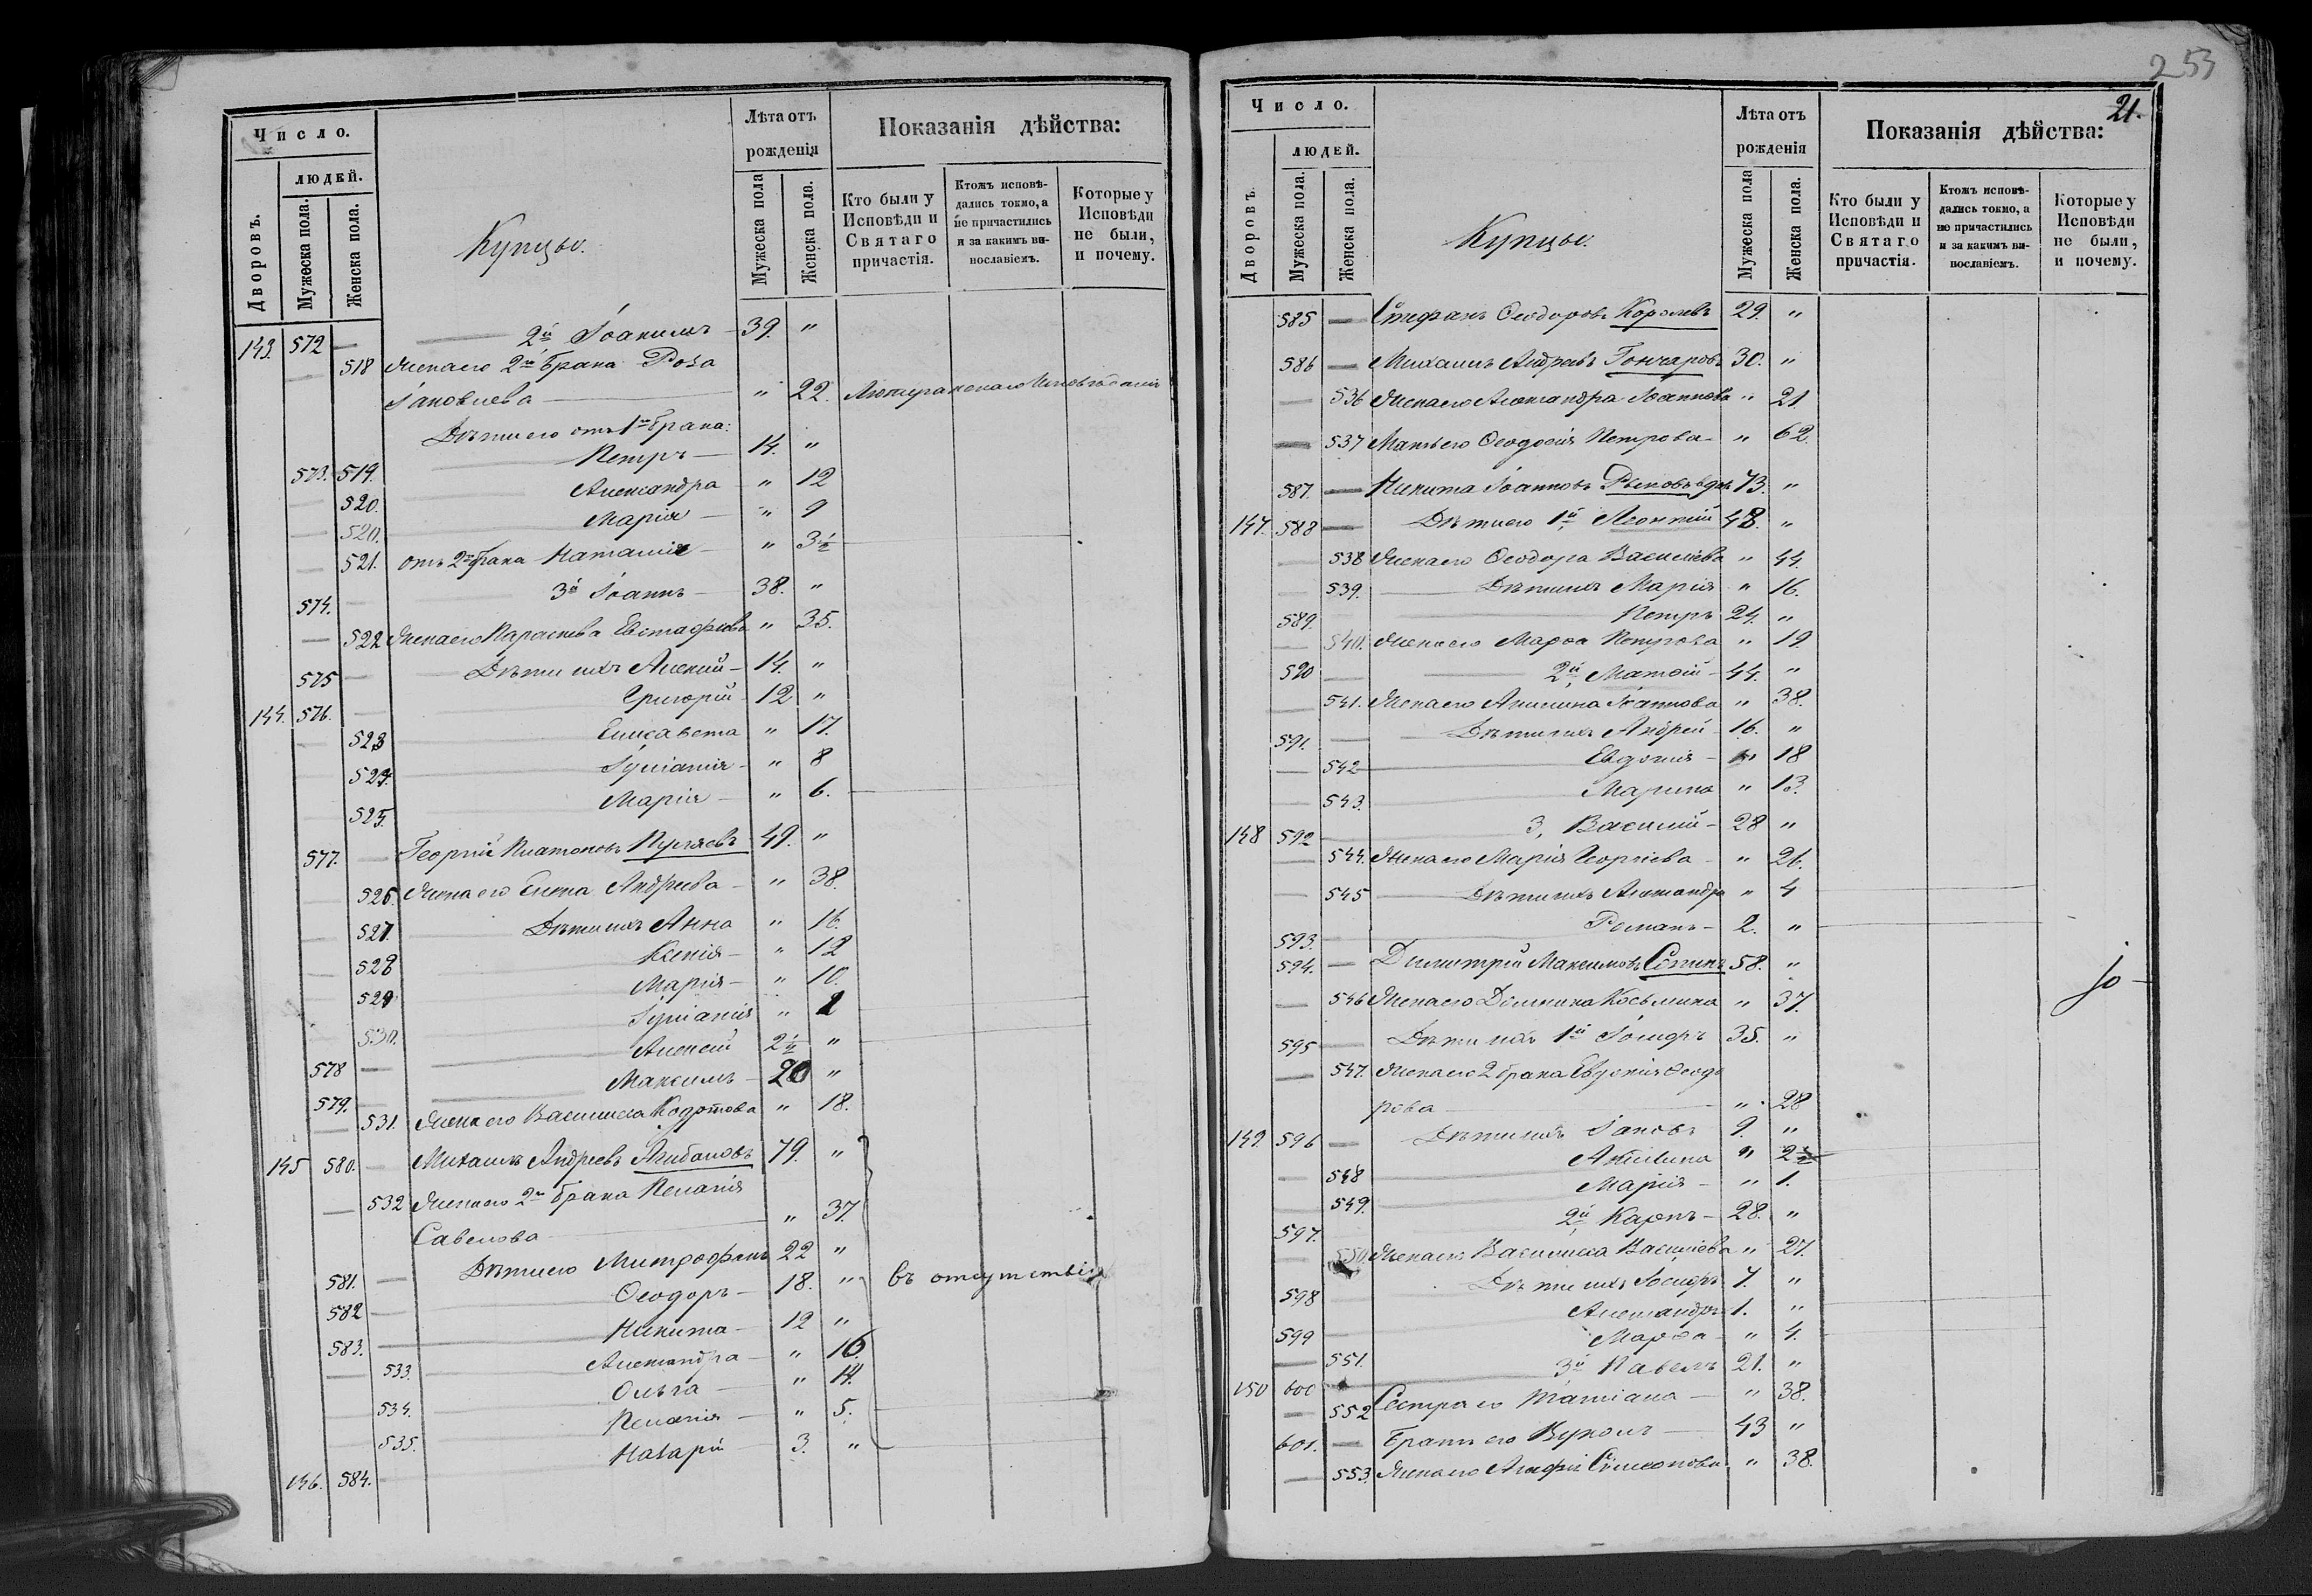 Число.
людей.
Дворовъ.
Мужеска пола.
Женска пола.
Купцы.
Лѣта отъ рожденія
Мужеска пола
Женска пола.
Показанія дѣйства:
Кто были у Исповѣди и Святаго причастія.
Ктожъ исповѣ-
дались токмо, а
не причастились
и за какимъ ви-
нословіемъ.
Которые у
Исповѣди
не были,
и почему.
143. 572 — 2й Іоакимъ — 39. "
— 518 Жена его 2го брака Роза
Іаковлева — " 22. Лютеранскаго Исповѣданія
Дѣти его отъ 1го брака:
573. 519. Петръ — 14. "
— 520. Александра — " 12
— 520. Марія — " 9
— 521. отъ 2го брака Наталія — " 3½
574. — 3й Іоаннъ — 38. "
— 522 Жена его Параскева Евстафіева " 35.
575 — Дѣти ихъ Алексій — 14. "
144. 576. — Григорій — 12 "
— 523 Елисавета " 17.
— 524. Іуліанія — " 8
— 525. Марія — " 6.
577. — Георгій Платоновъ 49. "
— 526. Жена его Елена Андреева — " 38.
— 527. Дѣти ихъ Анна " 16.
— 528 Ксенія — " 12
— 529 Марія — " 10.
— 530. Іуліанія "
578 — Алексій 2½ "
579. — Максимъ — 20 "
— 531. Жена его Василисса " 18.
145 580. — Михаилъ Андреевъ 79. "
— 532 Жена его 2го брака Пелагія
Савелова — " 37.
581. — Дѣти его Митрофанъ 22 "
582 — Ѳеодоръ — 18. " въ отсутствіи
583. — Никита — 12 "
— 533. Александра — " 16.
— 534. Ольга — " 14.
— 535. Пелагія — " 5.
146. 584. — Назарій 3. "
253
21.
Число.
людей.
Дворовъ.
Мужеска пола.
Женска пола.
Купцы.
Лѣта отъ рожденія
Мужеска пола
Женска пола.
Показанія дѣйства:
Кто были у Исповѣди и Святаго причастія.
Ктожъ исповѣ-
дались токмо, а
не причастились
и за какимъ ви-
нословіемъ.
Которые у
Исповѣди
не были,
и почему.
585 — Стефанъ Ѳеодоровъ Королевъ 29. "
586 — Михаилъ Андреевъ Гончаровъ 30. "
— 536 Жена его Александра Іоаннова " 21
— 537 Мать его Ѳеодосія Петрова — " 62.
587. — Никита Іоанновъ Рыковъ вдовъ 73. "
147. 588 — Дѣти его 1й Леонтій 48. "
— 538 Жена его Ѳеодора Василіева " 44.
— 539. Дѣти ихъ Марія — " 16.
589. Петръ 24. "
— 540. Жена его Марѳа Петрова " 19.
590 — 2й, Матѳій — 44. "
— 541. Жена его Акилина Іоаннова " 38.
591. — Дѣти ихъ Андрей — 16. "
— 542 Евдокія — " 18
— 543. Марина " 13.
148 592 — 3, Василій — 28 "
— 544. Жена его Марія Георгіева — " 26.
— 545 Дѣти ихъ Александра " 4
593. — Романъ — 2. "
594. — Димитрій Максимовъ Сопинъ 58. "
— 546 Жена его Домникія Косьмина " 37.
595 — Дѣти ихъ 1й Іосифъ 35. "
— 547. Жена его 2 брака Евдокія Ѳеодо
рова — " 28
149. 596 — Дѣти ихъ Іаковъ 9. "
— 548 Акилина " 2½
— 549. Марія — " 1.
597. — 2й, Карпъ — 28. "
— 550. Жена его Василисса Василіева " 27.
598 — Дѣти ихъ Іосифъ 7. "
599 — Александръ 1. "
— 551. Марѳа — " 4.
150 600 3й Павелъ 21. "
— 552 Сестра его Татіана — " 38.
601. — Братъ его Вуколъ — 43 "
— 553. Жена его Агафія Симеонова " 38.